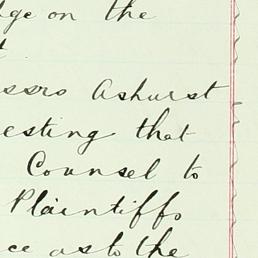 dge on the
t
ssrs Ashurst
esting that
Counsel to
Plaintiffs
ce as to the